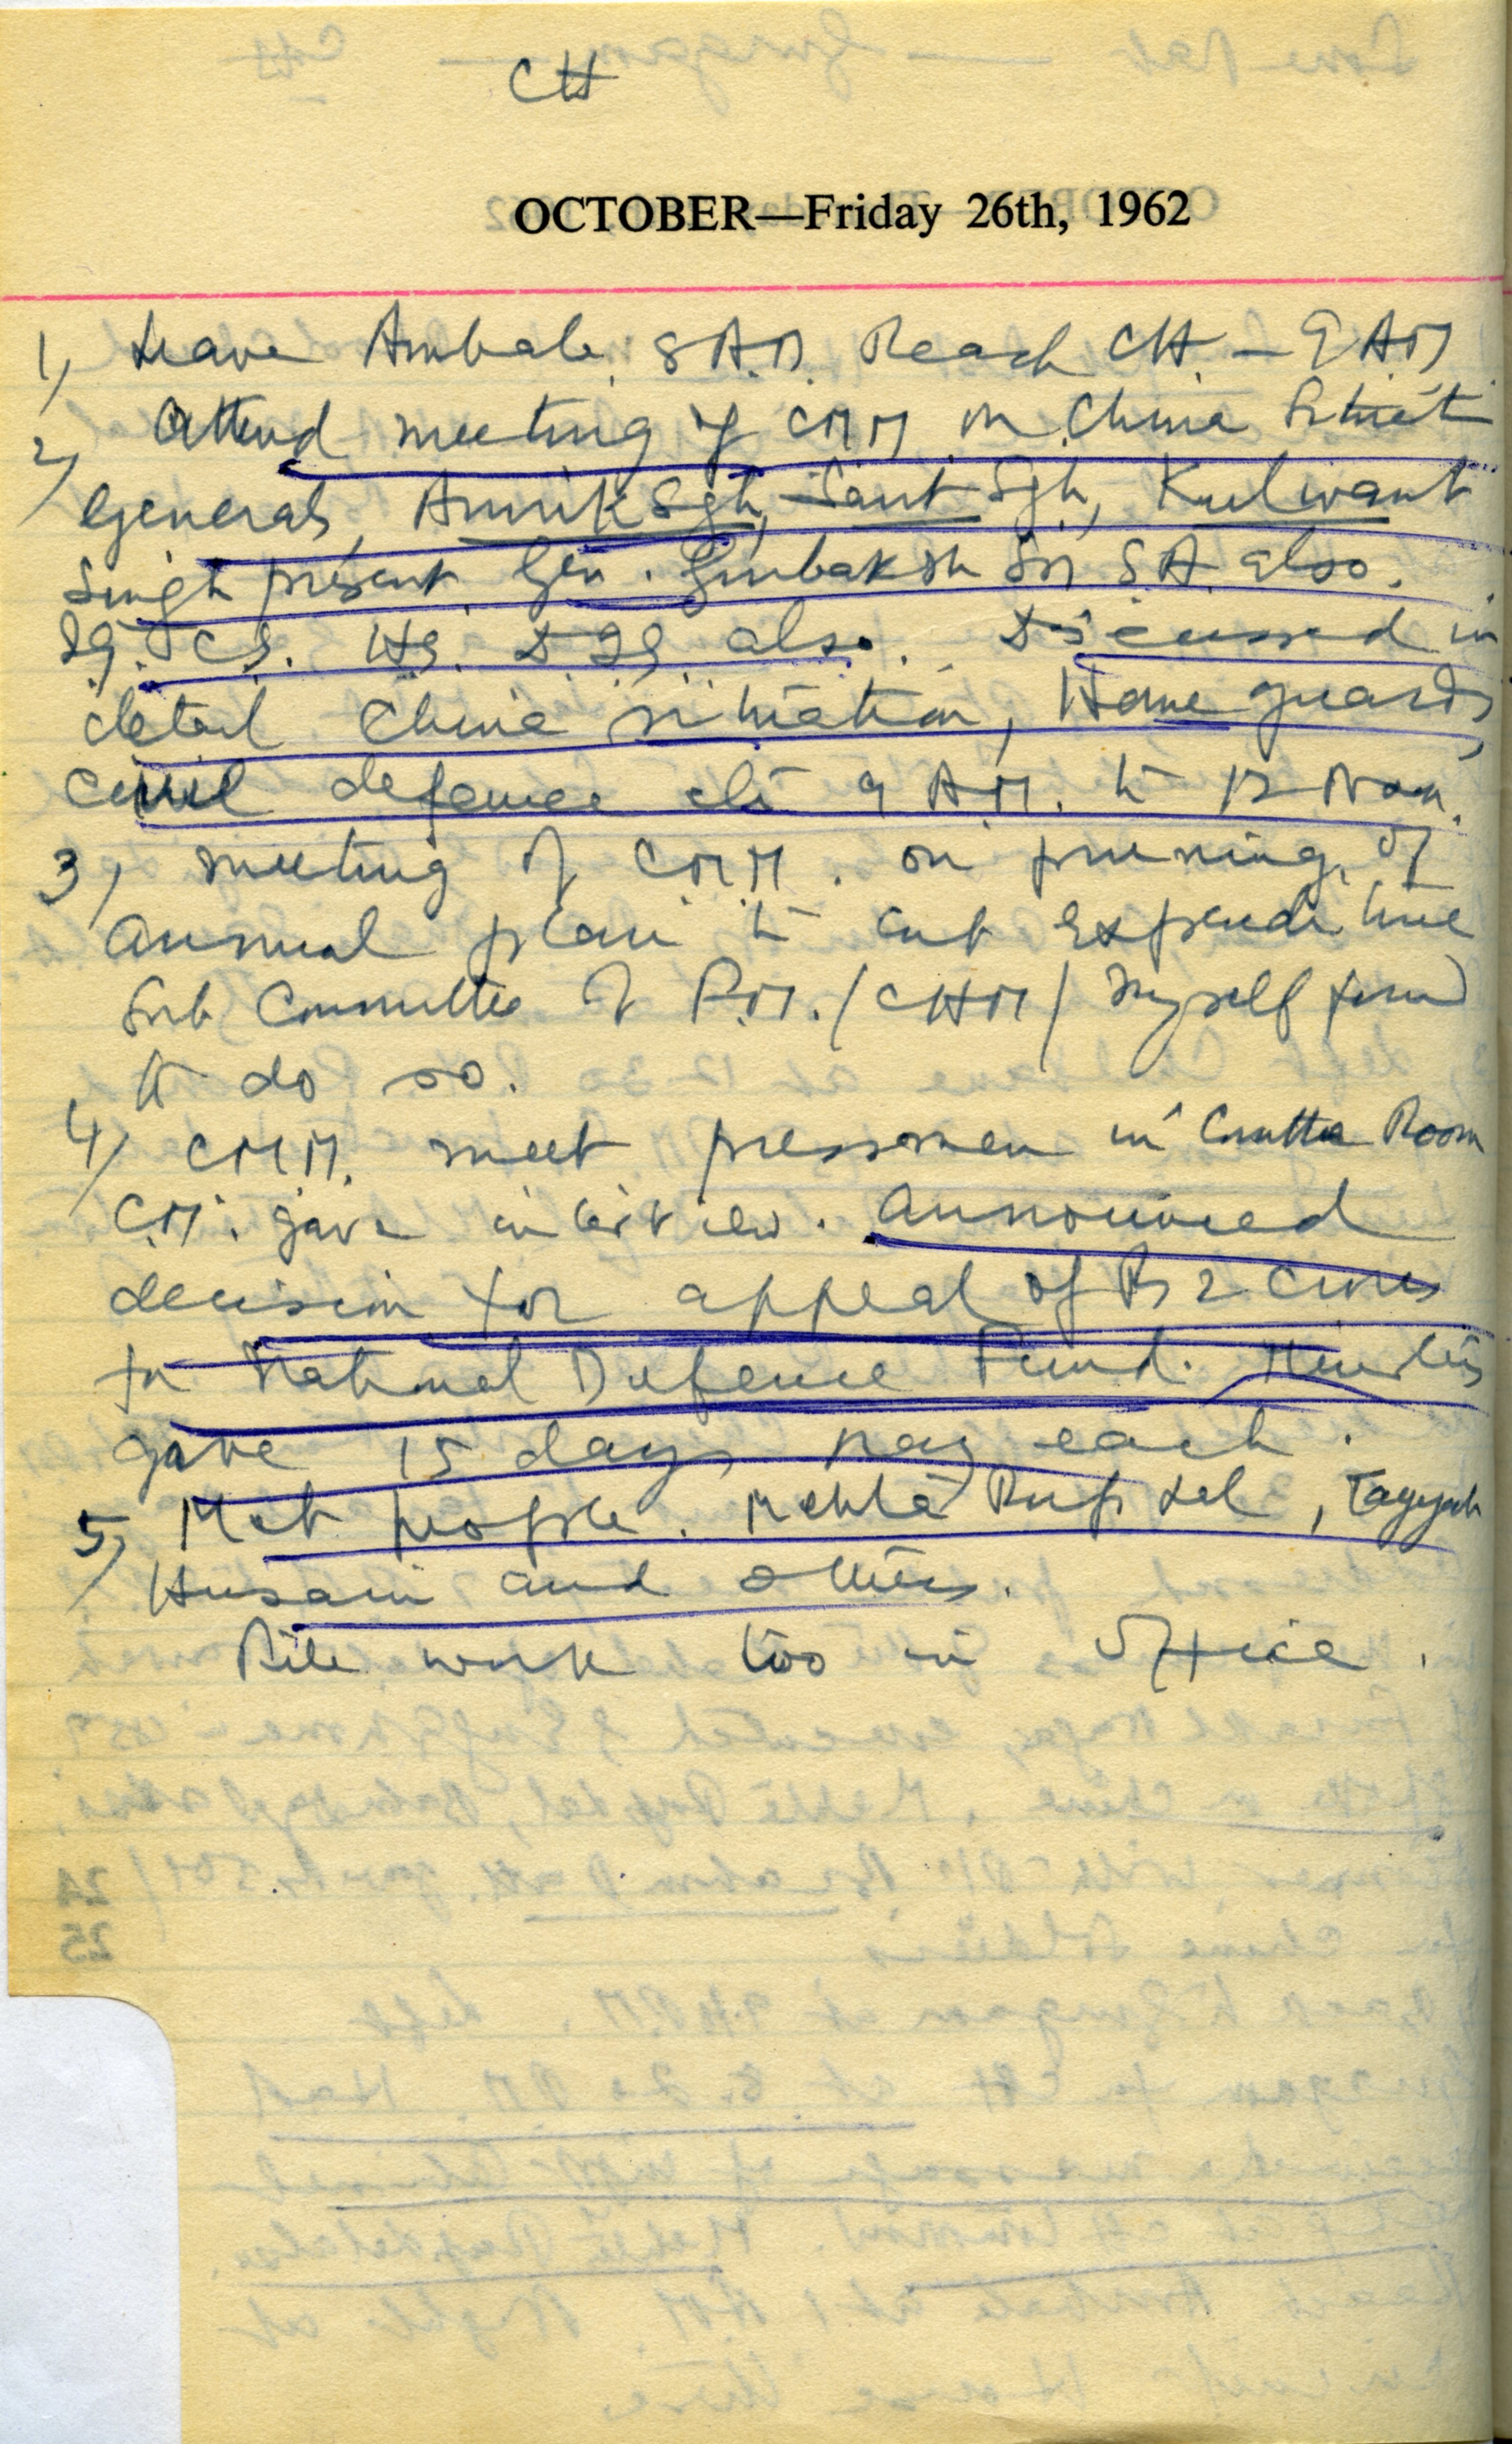 CH
OCTOBER—Friday 26th, 1962
1) Leave Ambala 8 A.M. Reach CH. — 9 AM
2) Attend meeting of CMM on China Situat
Generals, Amrik Sgh, Sant Sgh, Kulwant
Singh present. Gen. Gurbaksh SA also.
IG. CS. HS. DIG also. Discussed in
detail China situation, Home guards,
Civil defence etc 9 A.M. to 12 Noon.
3) Meeting of CMM. on pruning of
annual plan to cut expenditure
Sub Committee of P.M./CHM/Myself formed
to do so.
4) CMM. meet pressmen in Room
CM. gave interview. Announced
decision for appeal of Rs 2 crores
for National Defence Fund. Ministers
gave 15 days pay each.
5) Met people. Mehta Rup Lal, Tayyab
Husain and others.
File work too in office.